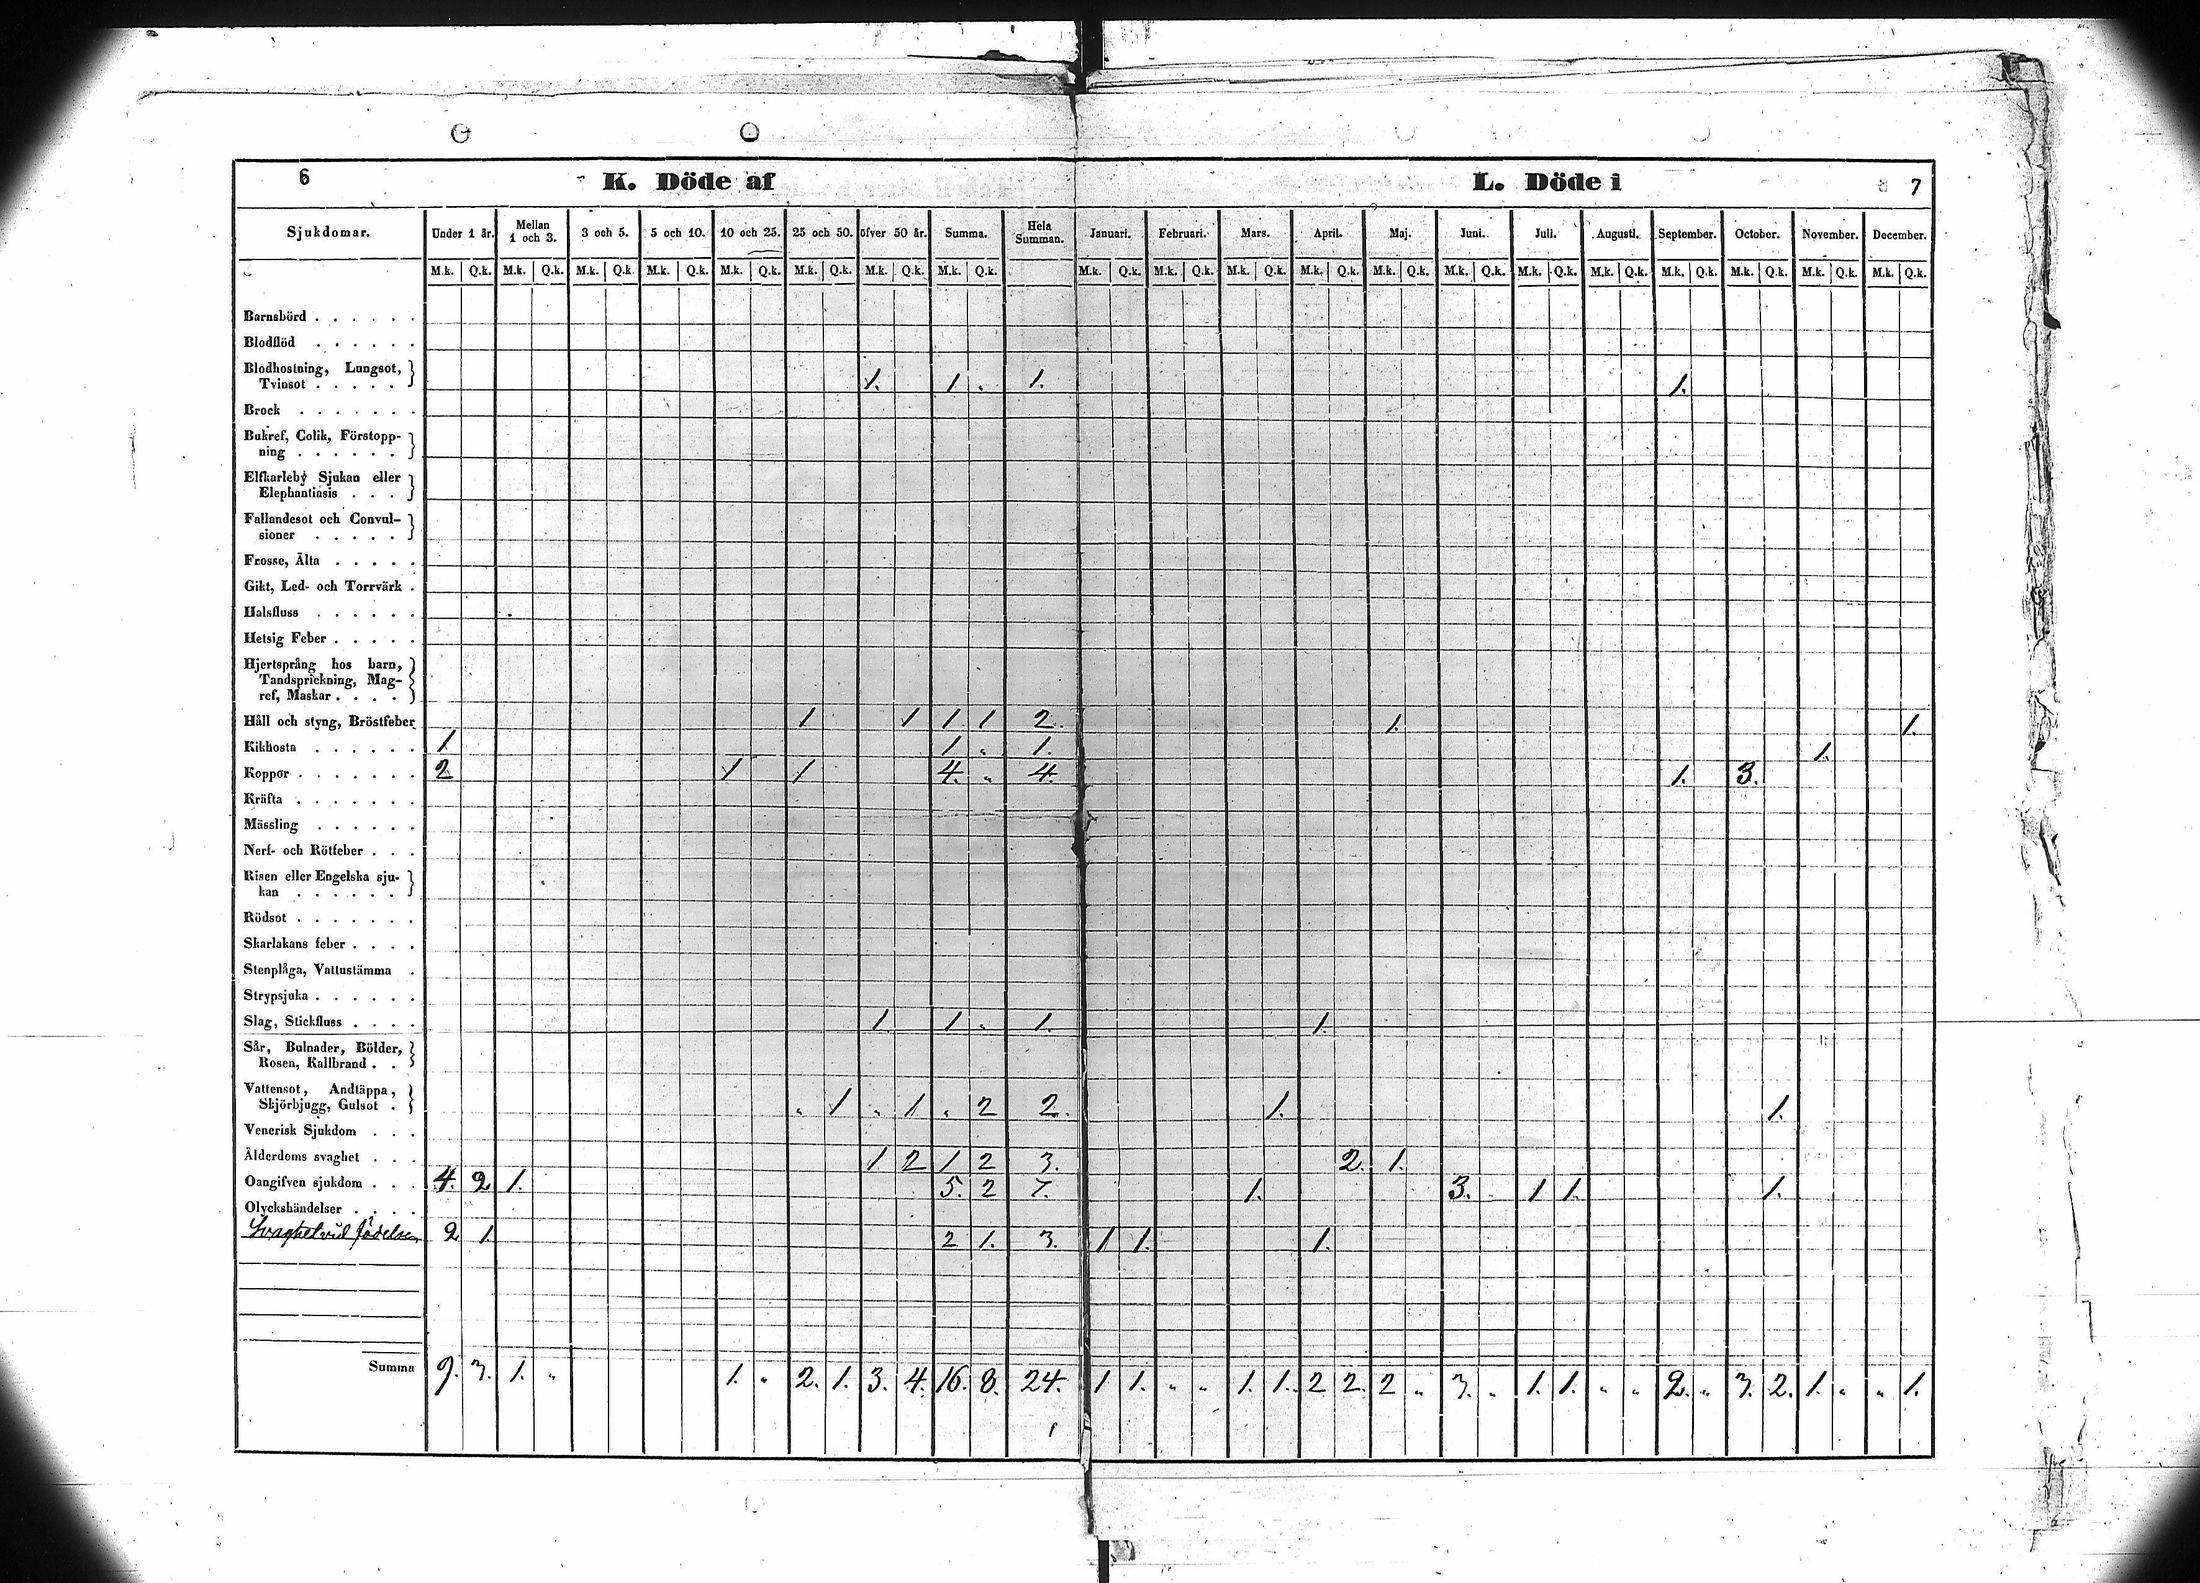 6 K. Döde af L. Döde i 7
Sjukdomar. Under 1 år. Mellan 1 och 3. 3 och 5. 5 och 10. 10 och 25. 25 och 50. öfver 50 år. Summa. Hela Summan. Januari. Februari. Mars. April. Maj. Juni. Juli. Augusti. September. October. November. December.
M.k. Q.k. M.k. Q.k. M.k. Q.k. M.k. Q.k. M.k. Q.k. M.k. Q.k. M.k. Q.k. M.k. Q.k. M.k. Q.k. M.k. Q.k. M.k. Q.k. M.k. Q.k. M.k. Q.k. M.k. Q.k. M.k. Q.k. M.k. Q.k. M.k. Q.k. M.k. Q.k. M.k. Q.k. M.k. Q.k.
Barnsbörd . . . . . .
Blodflöd . . . . . .
Blodhostning, Lungsot,
Tvinsot . . . . . 1. 1 „ 1. 1.
Brock . . . . . . .
Bukref, Colik, Förstopp-
ning . . . . . .
Elfkarleby Sjukan eller
Elephantiasis . . .
Fallandesot och Convul-
sioner . . . . .
Frosse, Älta . . . . .
Gikt, Led- och Torrvärk .
Halsfluss . . . . . .
Hetsig Feber . . . . .
Hjertsprång hos barn,
Tandsprickning, Mag-
ref, Maskar . . . .
Håll och styng, Bröstfeber 1 1 1 1 2. 1. 1.
Kikhosta . . . . . . 1 1 „ 1. 1.
Koppor . . . . . . . 2 1 1 4. „ 4. 1. 3.
Kräfta . . . . . . .
Mässling . . . . . .
Nerf- och Rötfeber . . .
Risen eller Engelska sju-
kan . . . . . .
Rödsot . . . . . . .
Skarlakans feber . . . .
Stenplåga, Vattustämma .
Strypsjuka . . . . . .
Slag, Stickfluss . . . . 1 1 „ 1. 1.
Sår, Bulnader, Bölder,
Rosen, Kallbrand . .
Vattensot, Andtäppa,
Skjörbjugg, Gulsot . „ 1 „ 1 „ 2 2. 1. 1.
Venerisk Sjukdom . . .
Ålderdoms svaghet . . . 1 2 1 2 3. 2. 1.
Oangifven sjukdom . . . 4. 2 1. 5. 2 7. 1. 3. 1 1. 1.
Olyckshändelser . . . .
Svaghet vid födelsen 2 1. 2 1. 3. 1 1. 1.
Summa 9. 3. 1. „ 1. „ 2. 1. 3. 4. 16. 8. 24. 1 1. „ „ 1. 1. 2 2. 2 „ 3. „ 1. 1. „ „ 2. „ 3. 2. 1. „ „ 1.